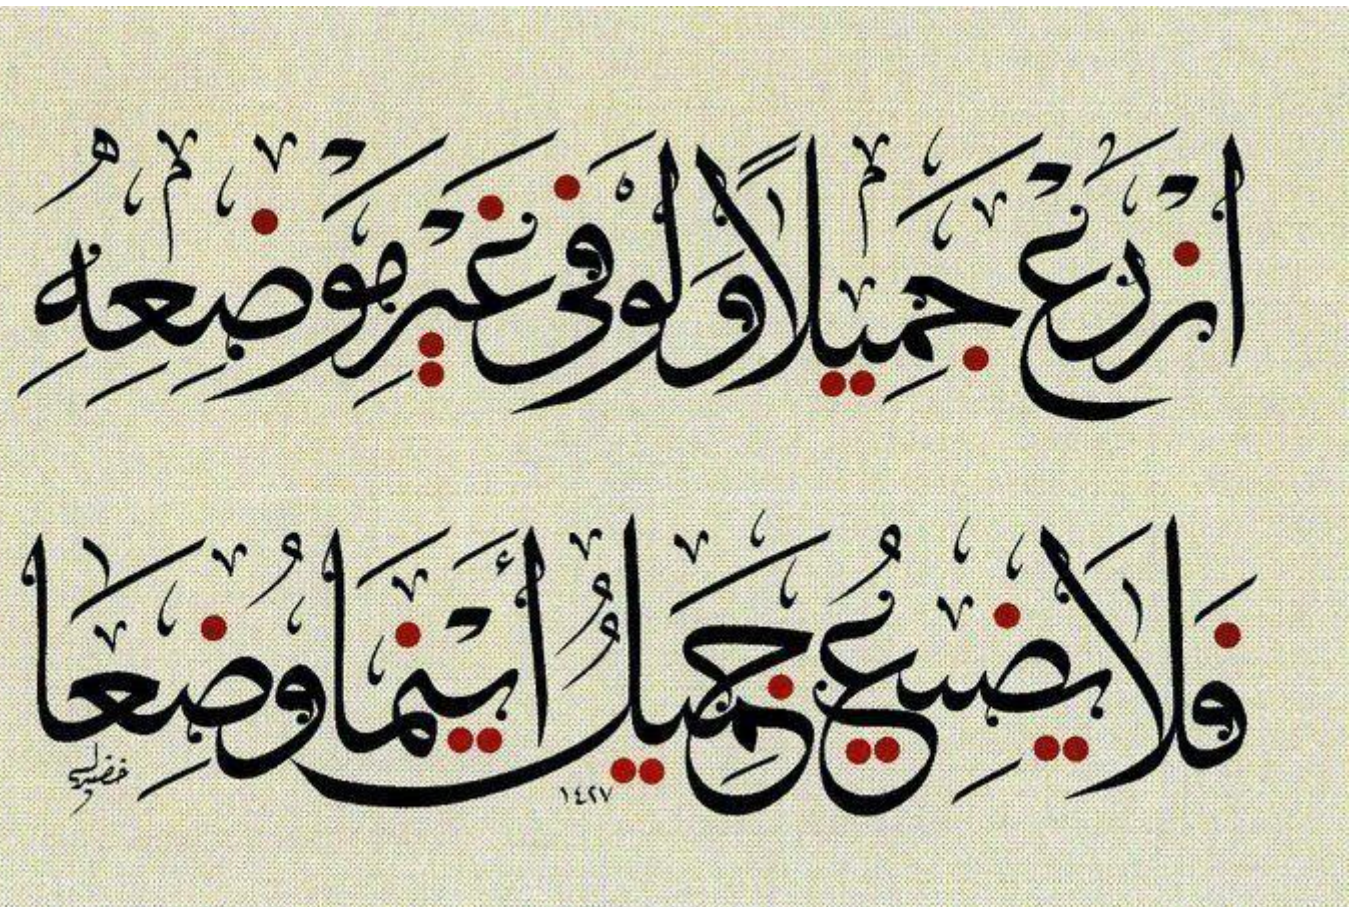 ازْرَعْ جَمِيلًا وَلَوْ فِي غَيْرِ مَوْضِعِهِ
فَلَا يَضِيعُ جَمِيلٌ أَيْنَمَا وُضِعَا
١٤٢٧